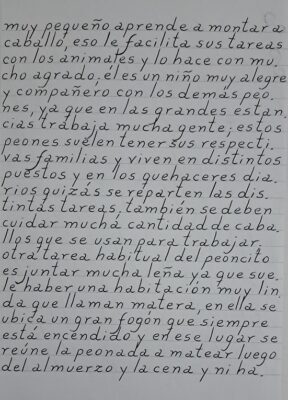 muy pequeño aprende a montar a
caballo, eso le facilita sus tareas
con los animales y lo hace con mu.
cho agrado, él es un niño muy alegre
y compañero con los demás peo.
nes, ya que en las grandes estan.
cias trabaja mucha gente; estos
peones suelen tener sus respecti.
vas familias y viven en distintos
puestos y en los quehaceres dia.
rios quizás se reparten las dis.
tintas tareas, también se deben
cuidar mucha cantidad de caba.
llos que se usan para trabajar.
otra tarea habitual del peoncito
es juntar mucha leña ya que sue.
le haber una habitación muy lin.
da que llaman matera, en ella se
ubica un gran fogón que siempre
está encendido y en ese lugar se
reúne la peonada a matear luego
del almuerzo y la cena y ni ha.